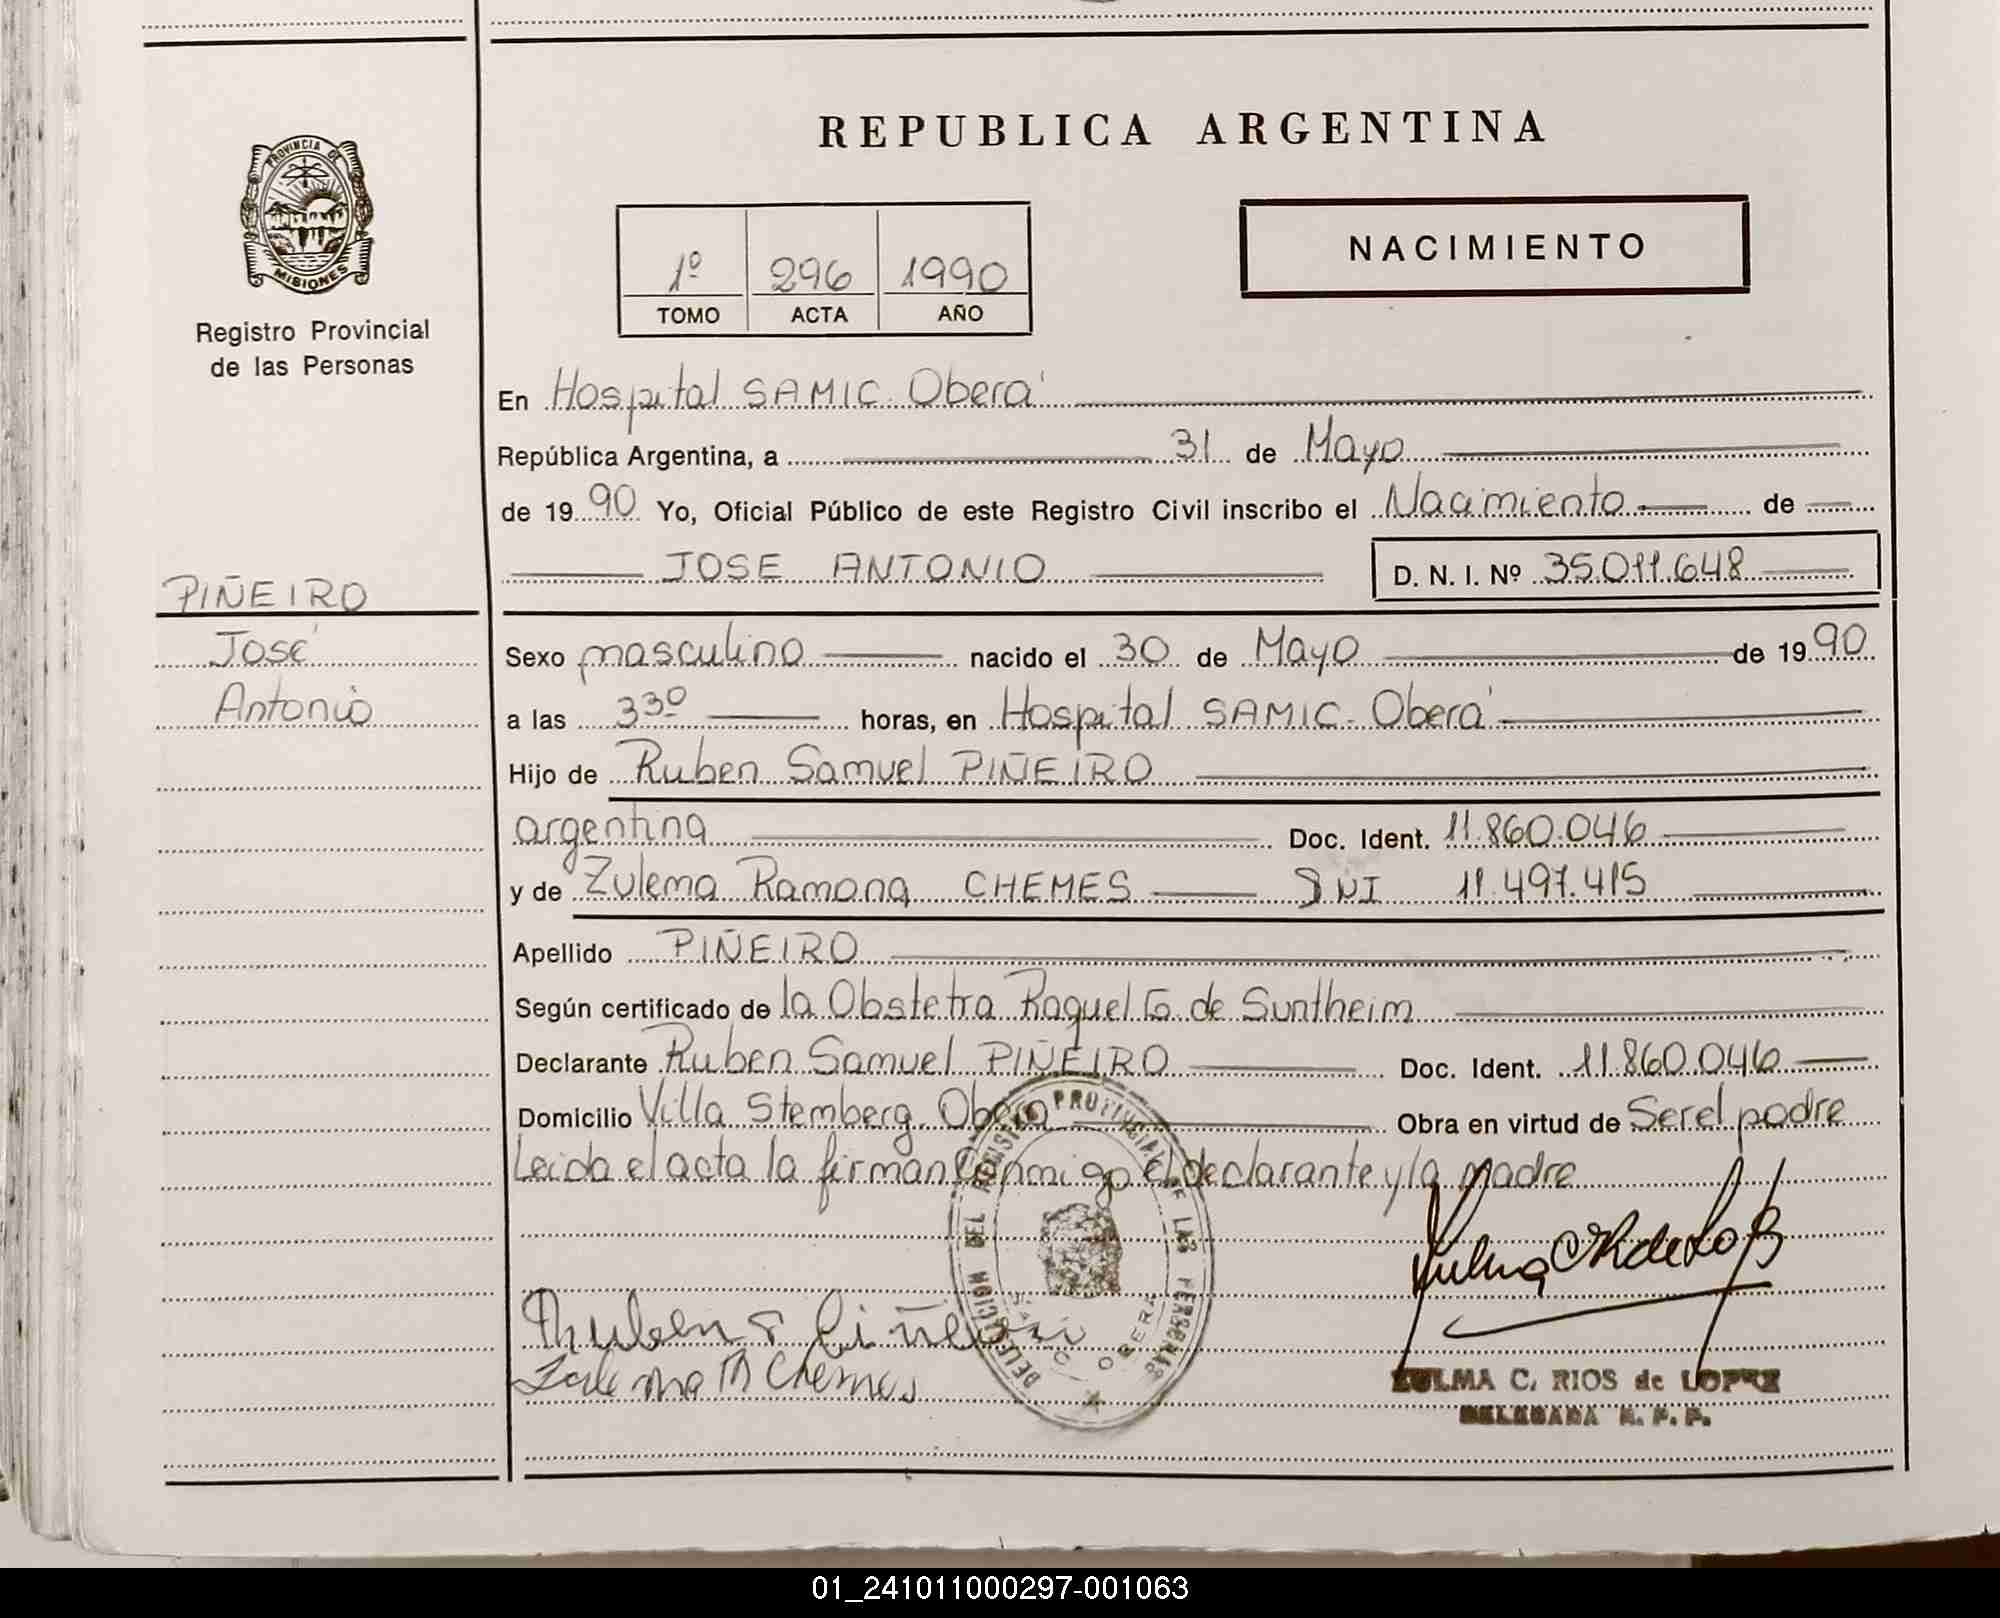 PROVINCIA DE
MISIONES
Registro Provincial
de las Personas
PIÑEIRO
José
Antonio
REPUBLICA ARGENTINA
1º 296 1990
TOMO ACTA AÑO
NACIMIENTO
En Hospital SAMIC. Oberá
República Argentina, a 31 de Mayo
de 1990 Yo, Oficial Público de este Registro Civil inscribo el Nacimiento de
JOSE ANTONIO D. N. I. Nº 35.011.648
Sexo masculino nacido el 30 de Mayo de 1990
a las 3³⁰ horas, en Hospital SAMIC - Oberá
Hijo de Ruben Samuel PIÑEIRO
argentina Doc. Ident. 11.860.046
y de Zulema Ramona CHEMES DNI 11.497.415
Apellido PIÑEIRO
Según certificado de la Obstetra Raquel G de Suntheim
Declarante Ruben Samuel PIÑEIRO Doc. Ident. 11.860.046
Domicilio Villa Stemberg. Oberá Obra en virtud de Ser el padre
Leida el acta la firman Conmigo el declarante y la madre
DELEGACION DEL REGISTRO PROVINCIAL DE LAS PERSONAS
OBERA
Ruben S Piñeiro
Zulema R Chemes
ZULMA C. RIOS de LOPEZ
DELEGADA R. P. P.
01_241011000297-001063